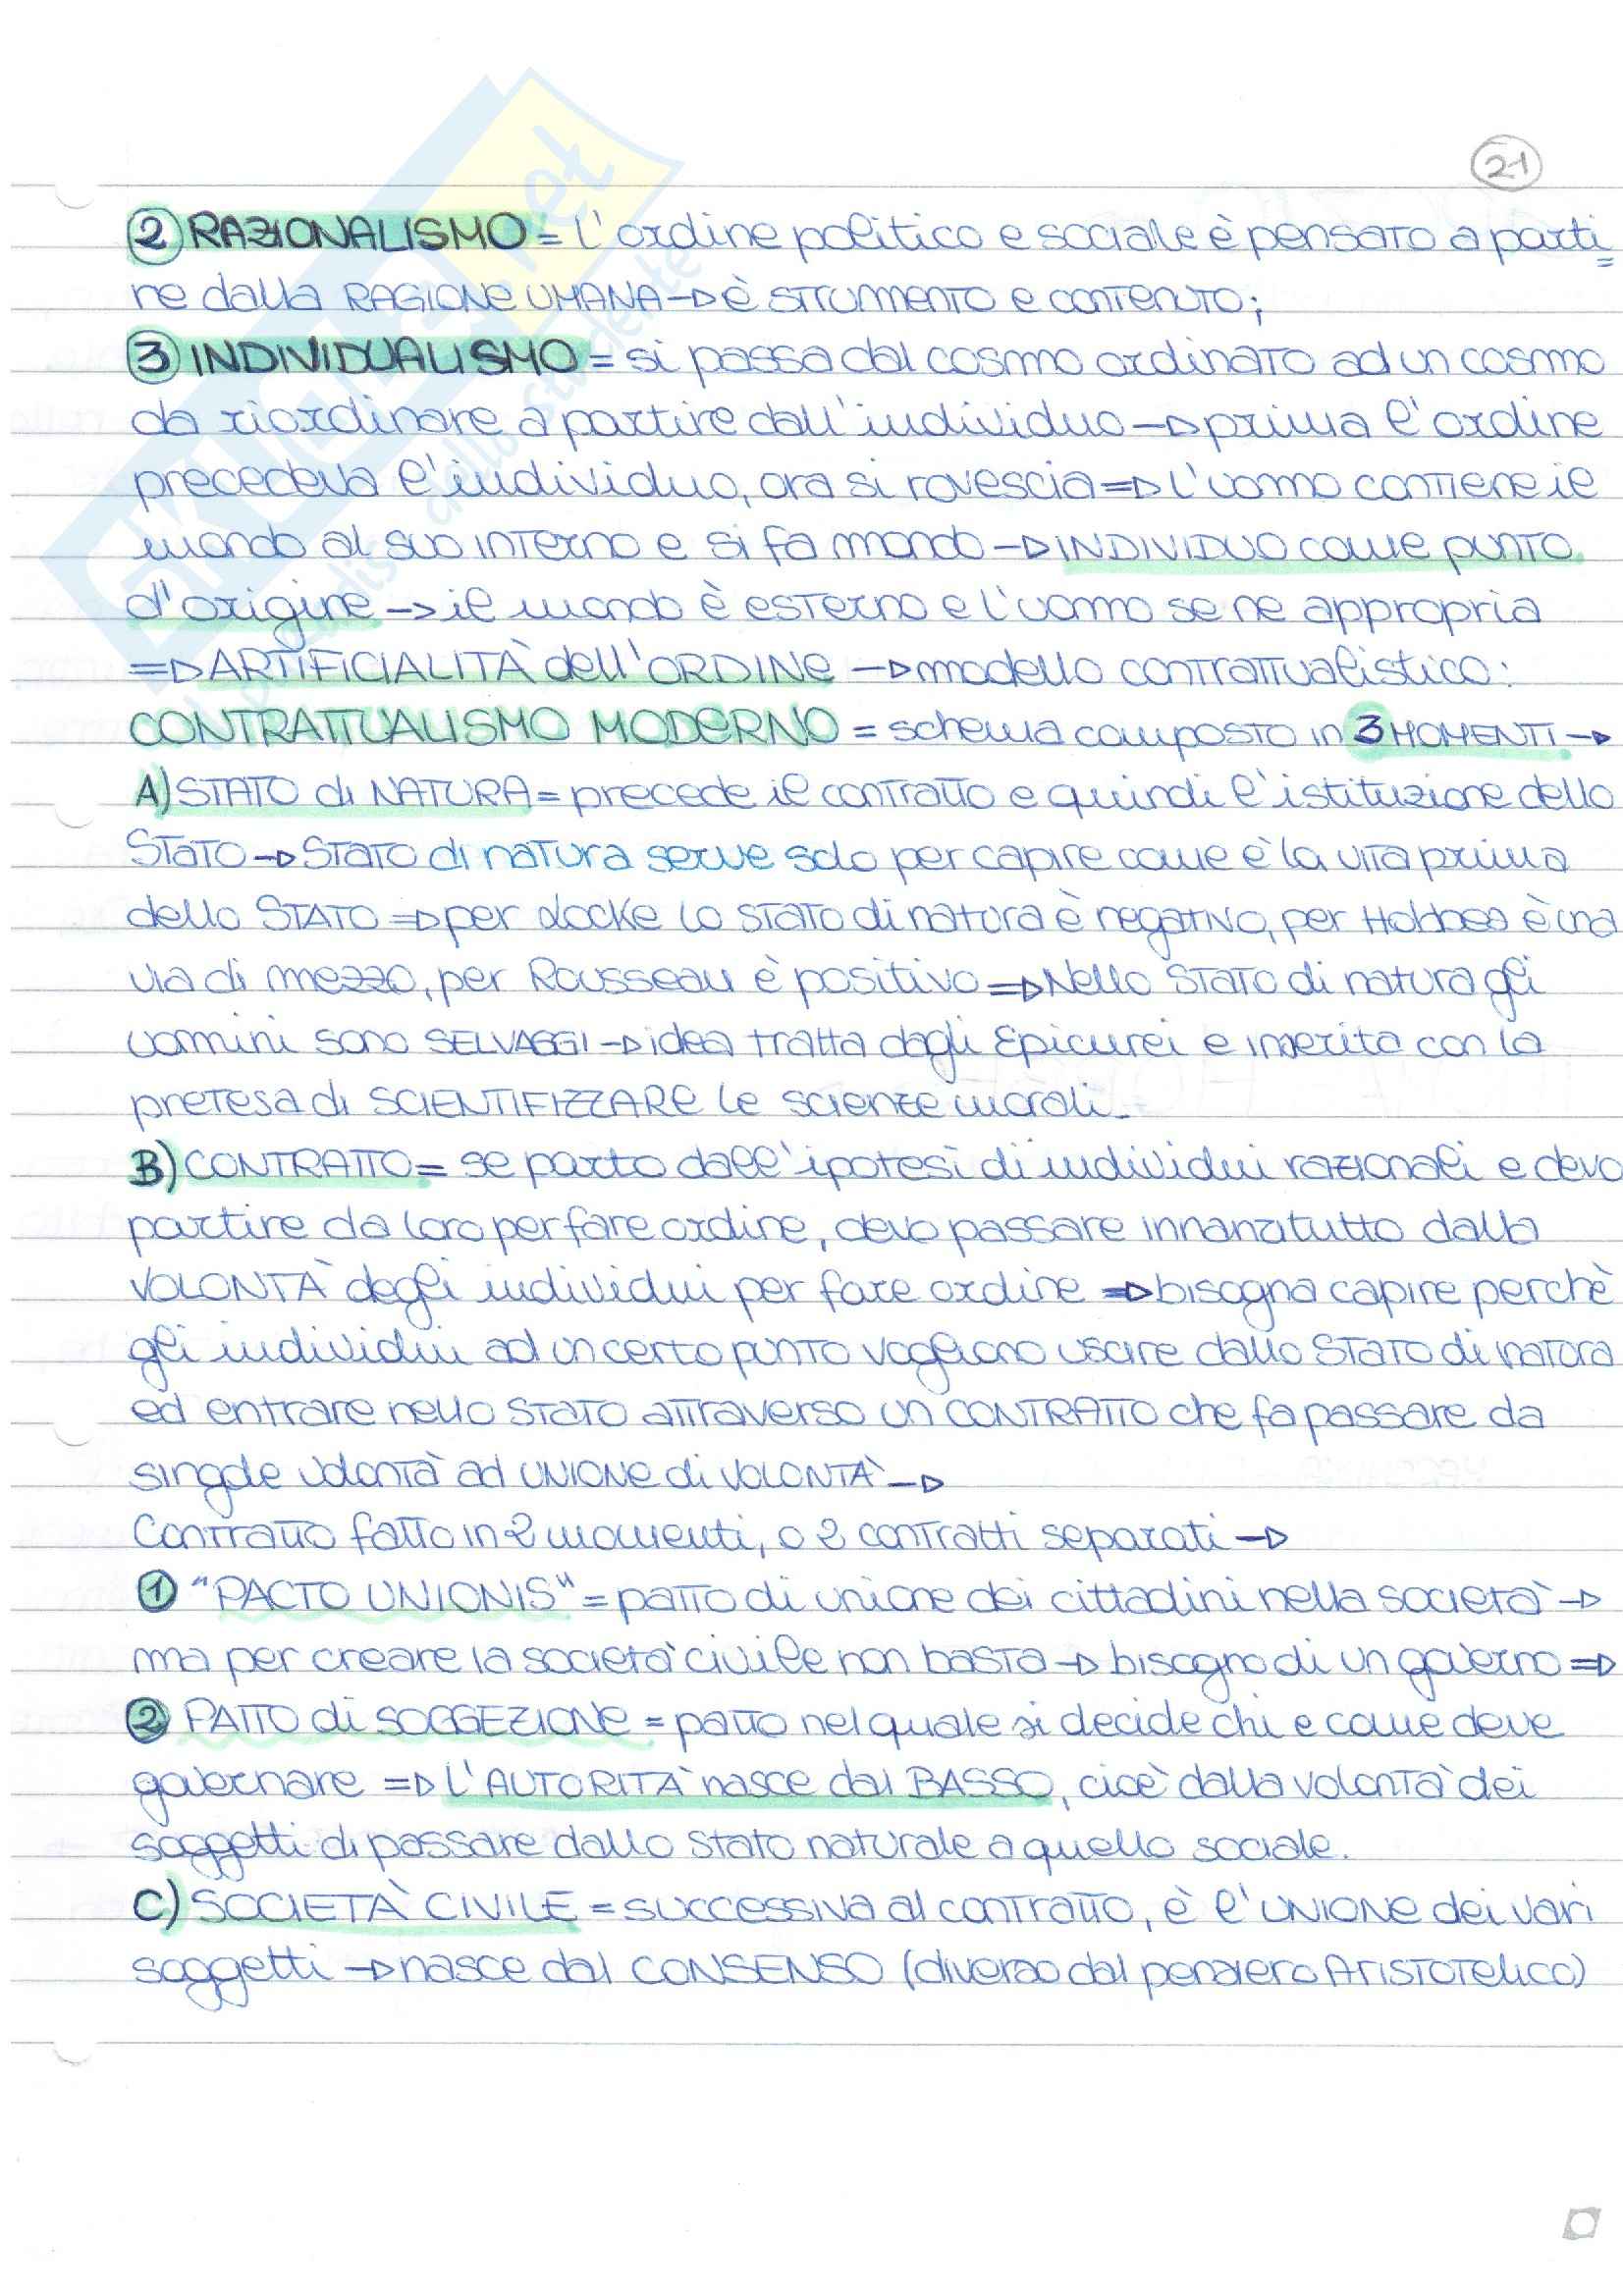 21
2 RAZIONALISMO = l'ordine politico e sociale è pensato a parti=
re dalla RAGIONE UMANA → è strumento e contenuto;
3 INDIVIDUALISMO = si passa dal cosmo ordinato ad un cosmo
da riordinare a partire dall'individuo → prima l'ordine
precedeva l'individuo, ora si rovescia ⇒ l'uomo contiene il
mondo al suo interno e si fa mondo → INDIVIDUO come punto
d'origine → il mondo è esterno e l'uomo se ne appropria
⇒ ARTIFICIALITÀ dell'ORDINE → modello contrattualistico:
CONTRATTUALISMO MODERNO = schema composto in 3 MOMENTI →
A) STATO di NATURA = precede il contratto e quindi l'istituzione dello
Stato → Stato di natura serve solo per capire come è la vita prima
dello STATO ⇒ per Locke lo stato di natura è negativo, per Hobbes è una
via di mezzo, per Rousseau è positivo ⇒ Nello Stato di natura gli
uomini sono SELVAGGI → idea tratta dagli Epicurei e inserita con la
pretesa di SCIENTIFIZZARE le scienze morali.
B) CONTRATTO = se parto dall'ipotesi di individui razionali e devo
partire da loro per fare ordine, devo passare innanzitutto dalla
VOLONTÀ degli individui per fare ordine ⇒ bisogna capire perchè
gli individui ad un certo punto vogliono uscire dallo Stato di natura
ed entrare nello Stato attraverso un CONTRATTO che fa passare da
singole volontà ad UNIONE di VOLONTÀ →
Contratto fatto in 2 momenti, o 2 contratti separati →
1 "PACTO UNIONIS" = patto di unione dei cittadini nella società →
ma per creare la società civile non basta → bisogno di un governo ⇒
2 PATTO di SOGGEZIONE = patto nel quale si decide chi e come deve
governare ⇒ L'AUTORITÀ nasce dal BASSO, cioè dalla volontà dei
soggetti di passare dallo stato naturale a quello sociale.
C) SOCIETÀ CIVILE = successiva al contratto, è l'UNIONE dei vari
soggetti → nasce dal CONSENSO (diverso dal pensiero Aristotelico)